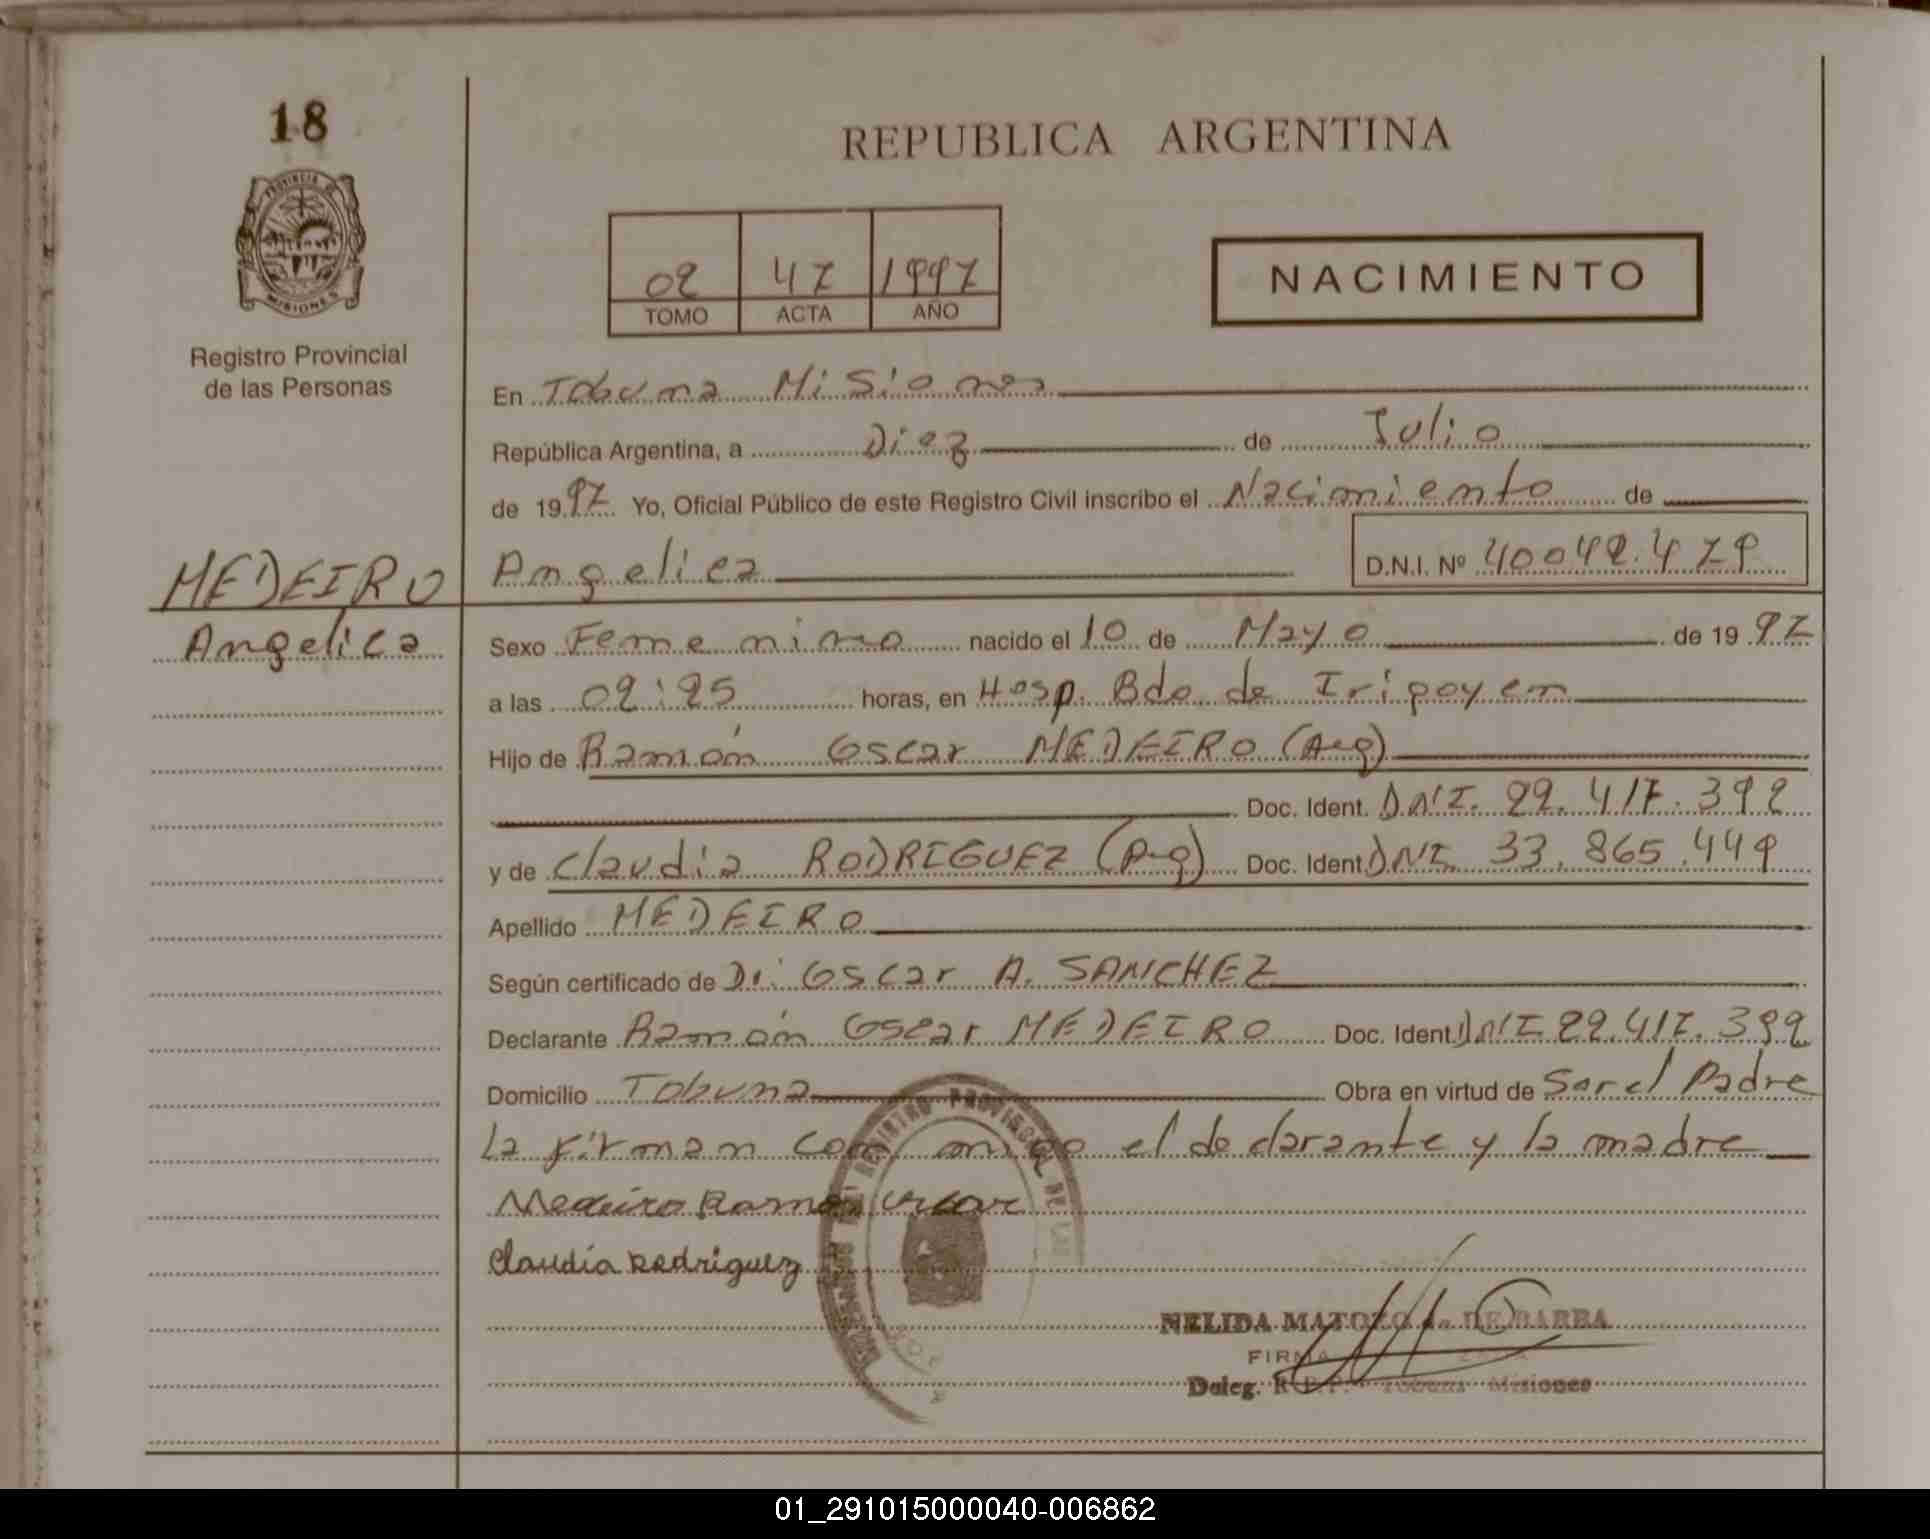 18
REPUBLICA ARGENTINA
PROVINCIA DE
MISIONES
Registro Provincial
de las Personas
02 47 1997
TOMO ACTA AÑO
NACIMIENTO
En Tobuna Misiones
República Argentina, a Diez de Julio
de 1997 Yo, Oficial Público de este Registro Civil inscribo el Nacimiento de
MEDEIRO Angelica D.N.I. Nº 40042.479
Angelica Sexo Femenino nacido el 10 de Mayo de 1997
a las 02:25 horas, en Hosp. Bdo de Irigoyen
Hijo de Ramón Oscar MEDEIRO (Arg)
Doc. Ident. DNI. 22.417.392
y de Claudia RODRIGUEZ (Arg) Doc. Ident. DNI. 33.865.449
Apellido MEDEIRO
Según certificado de Dr. Oscar A. SANCHEZ
Declarante Ramón Oscar MEDEIRO Doc. Ident. DNI 22.417.392
Domicilio Tobuna Obra en virtud de Ser el Padre
La firman conmigo el declarante y la madre
Medeiro Ramon Oscar
Claudia Rodriguez
REGISTRO PROVINCIAL DE LAS
NELIDA MATOZO de DE BARBA
FIRMA
Deleg. R.P.P. Tobuna Misiones
01_291015000040-006862